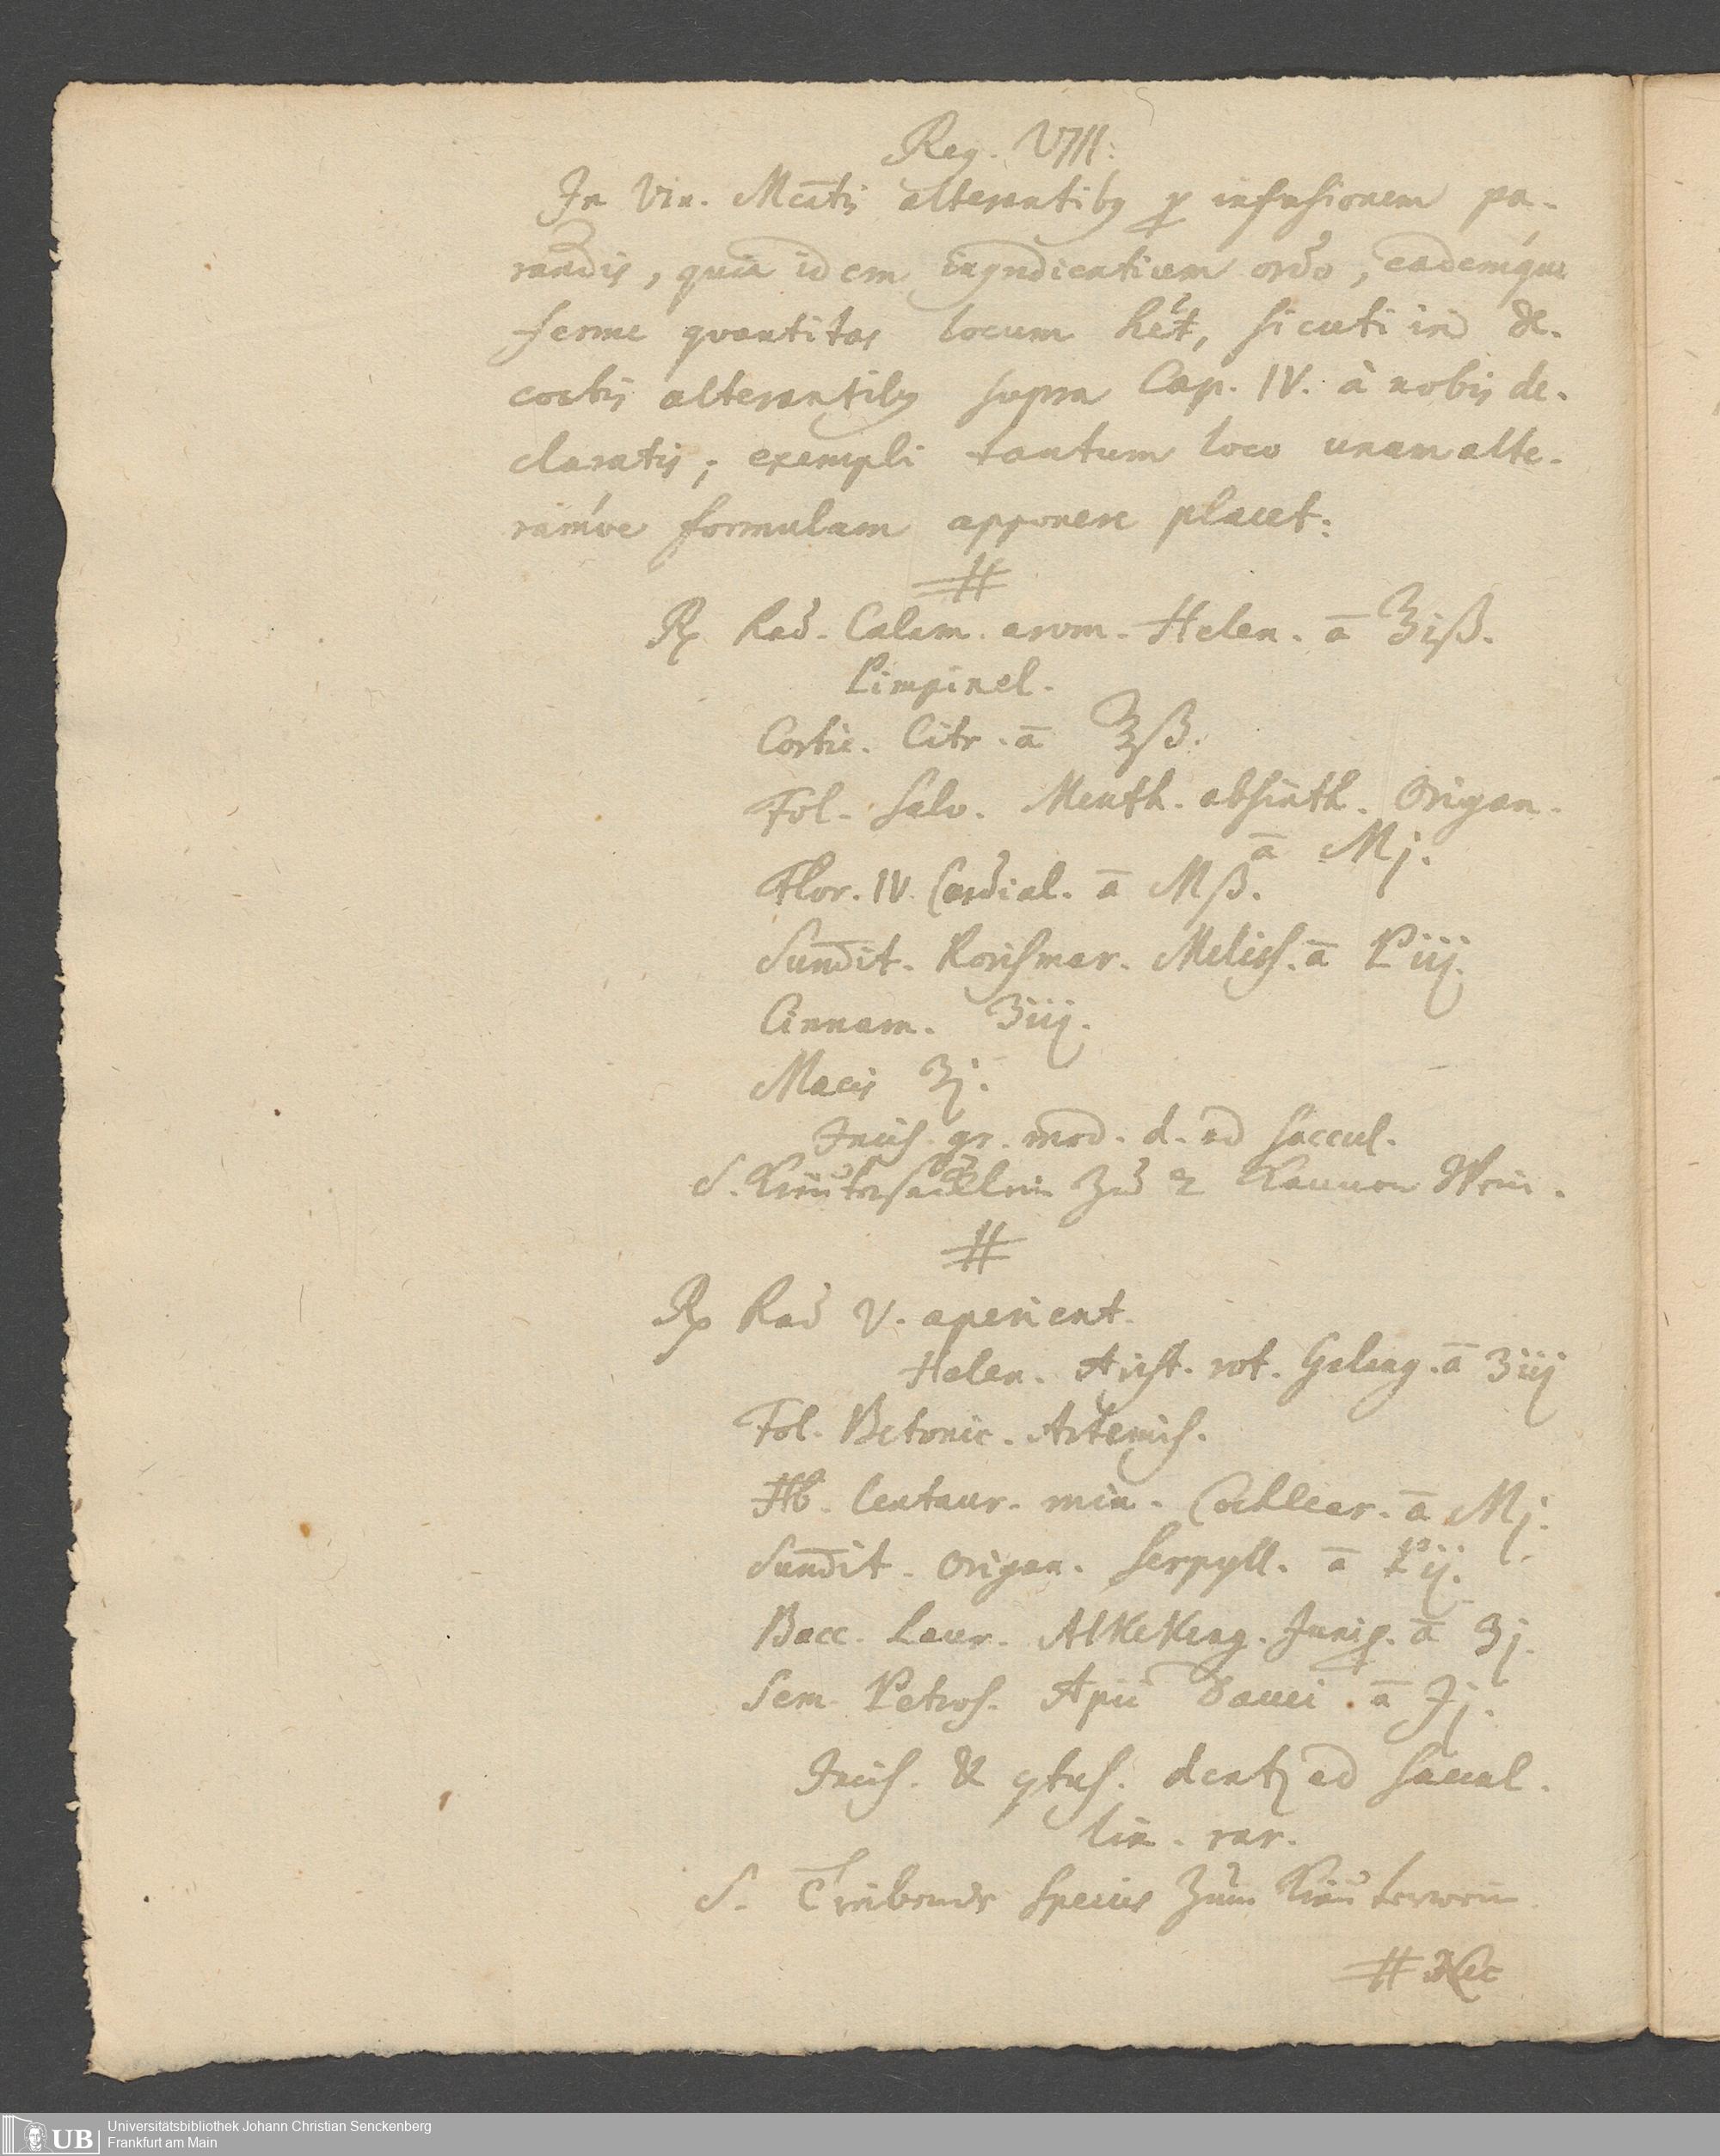 Reg. VIII:
In Vin. Mcatis alterantibꝯ ꝑ infusionem pa-
randis, quia idem ingredientium ordo, eademque
ferme quantitas locum het, sicuti in de-
coctis alterantibꝯ supra Cap. IV. à nobis de-
claratis; exempli tantum loco unam alte-
ramve formulam apponere placet:
#
℞ Rad. Calam. arom. Helen. ā ℥iß.
Pimpinel.
Cortic. Citr. ā ℥ß.
Fol. Salv. Menth. absinth. Origan.
ā Mj.
Flor. IV. Cordial. ā Mß.
Sum̄it. Rorismar. Meliss. ā Piij.
Cinnam. ʒiij.
Macis ʒj.
Incis. gr. mod. d. ad saccul.
S. Kräutersäcklein zu 2 Kannen Wein.
#
℞ Rad V. aperient.
Helen. Arist. rot. Galang. ā ʒiij
Fol. Betonic. Artemis.
Hb. Centaur. min. Cochlear. ā Mj.
Sum̄it. Origan. Serpyll. ā Pij.
Bacc. Laur. Alkekeng. Juniꝑ. ā ʒj.
Sem. Petros. Apii Dauci ā ℈j.
Incis. & ꝯtus. dentꝛ ad saccul.
lin. rar.
S. Treibende Species zum Kräuterwein
# Nec
UB Universitätsbibliothek Johann Christian Senckenberg
Frankfurt am Main